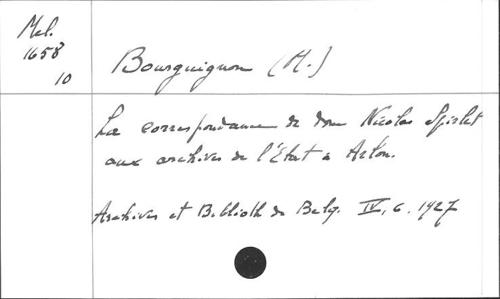 Mel.
1658
10
Bourguignon (M.)
La correspondance de dom Nicolas Spirlet
aux archives de l'Etat à Arlon.
Archives et Biblioth de Belg. IV, 6. 1927